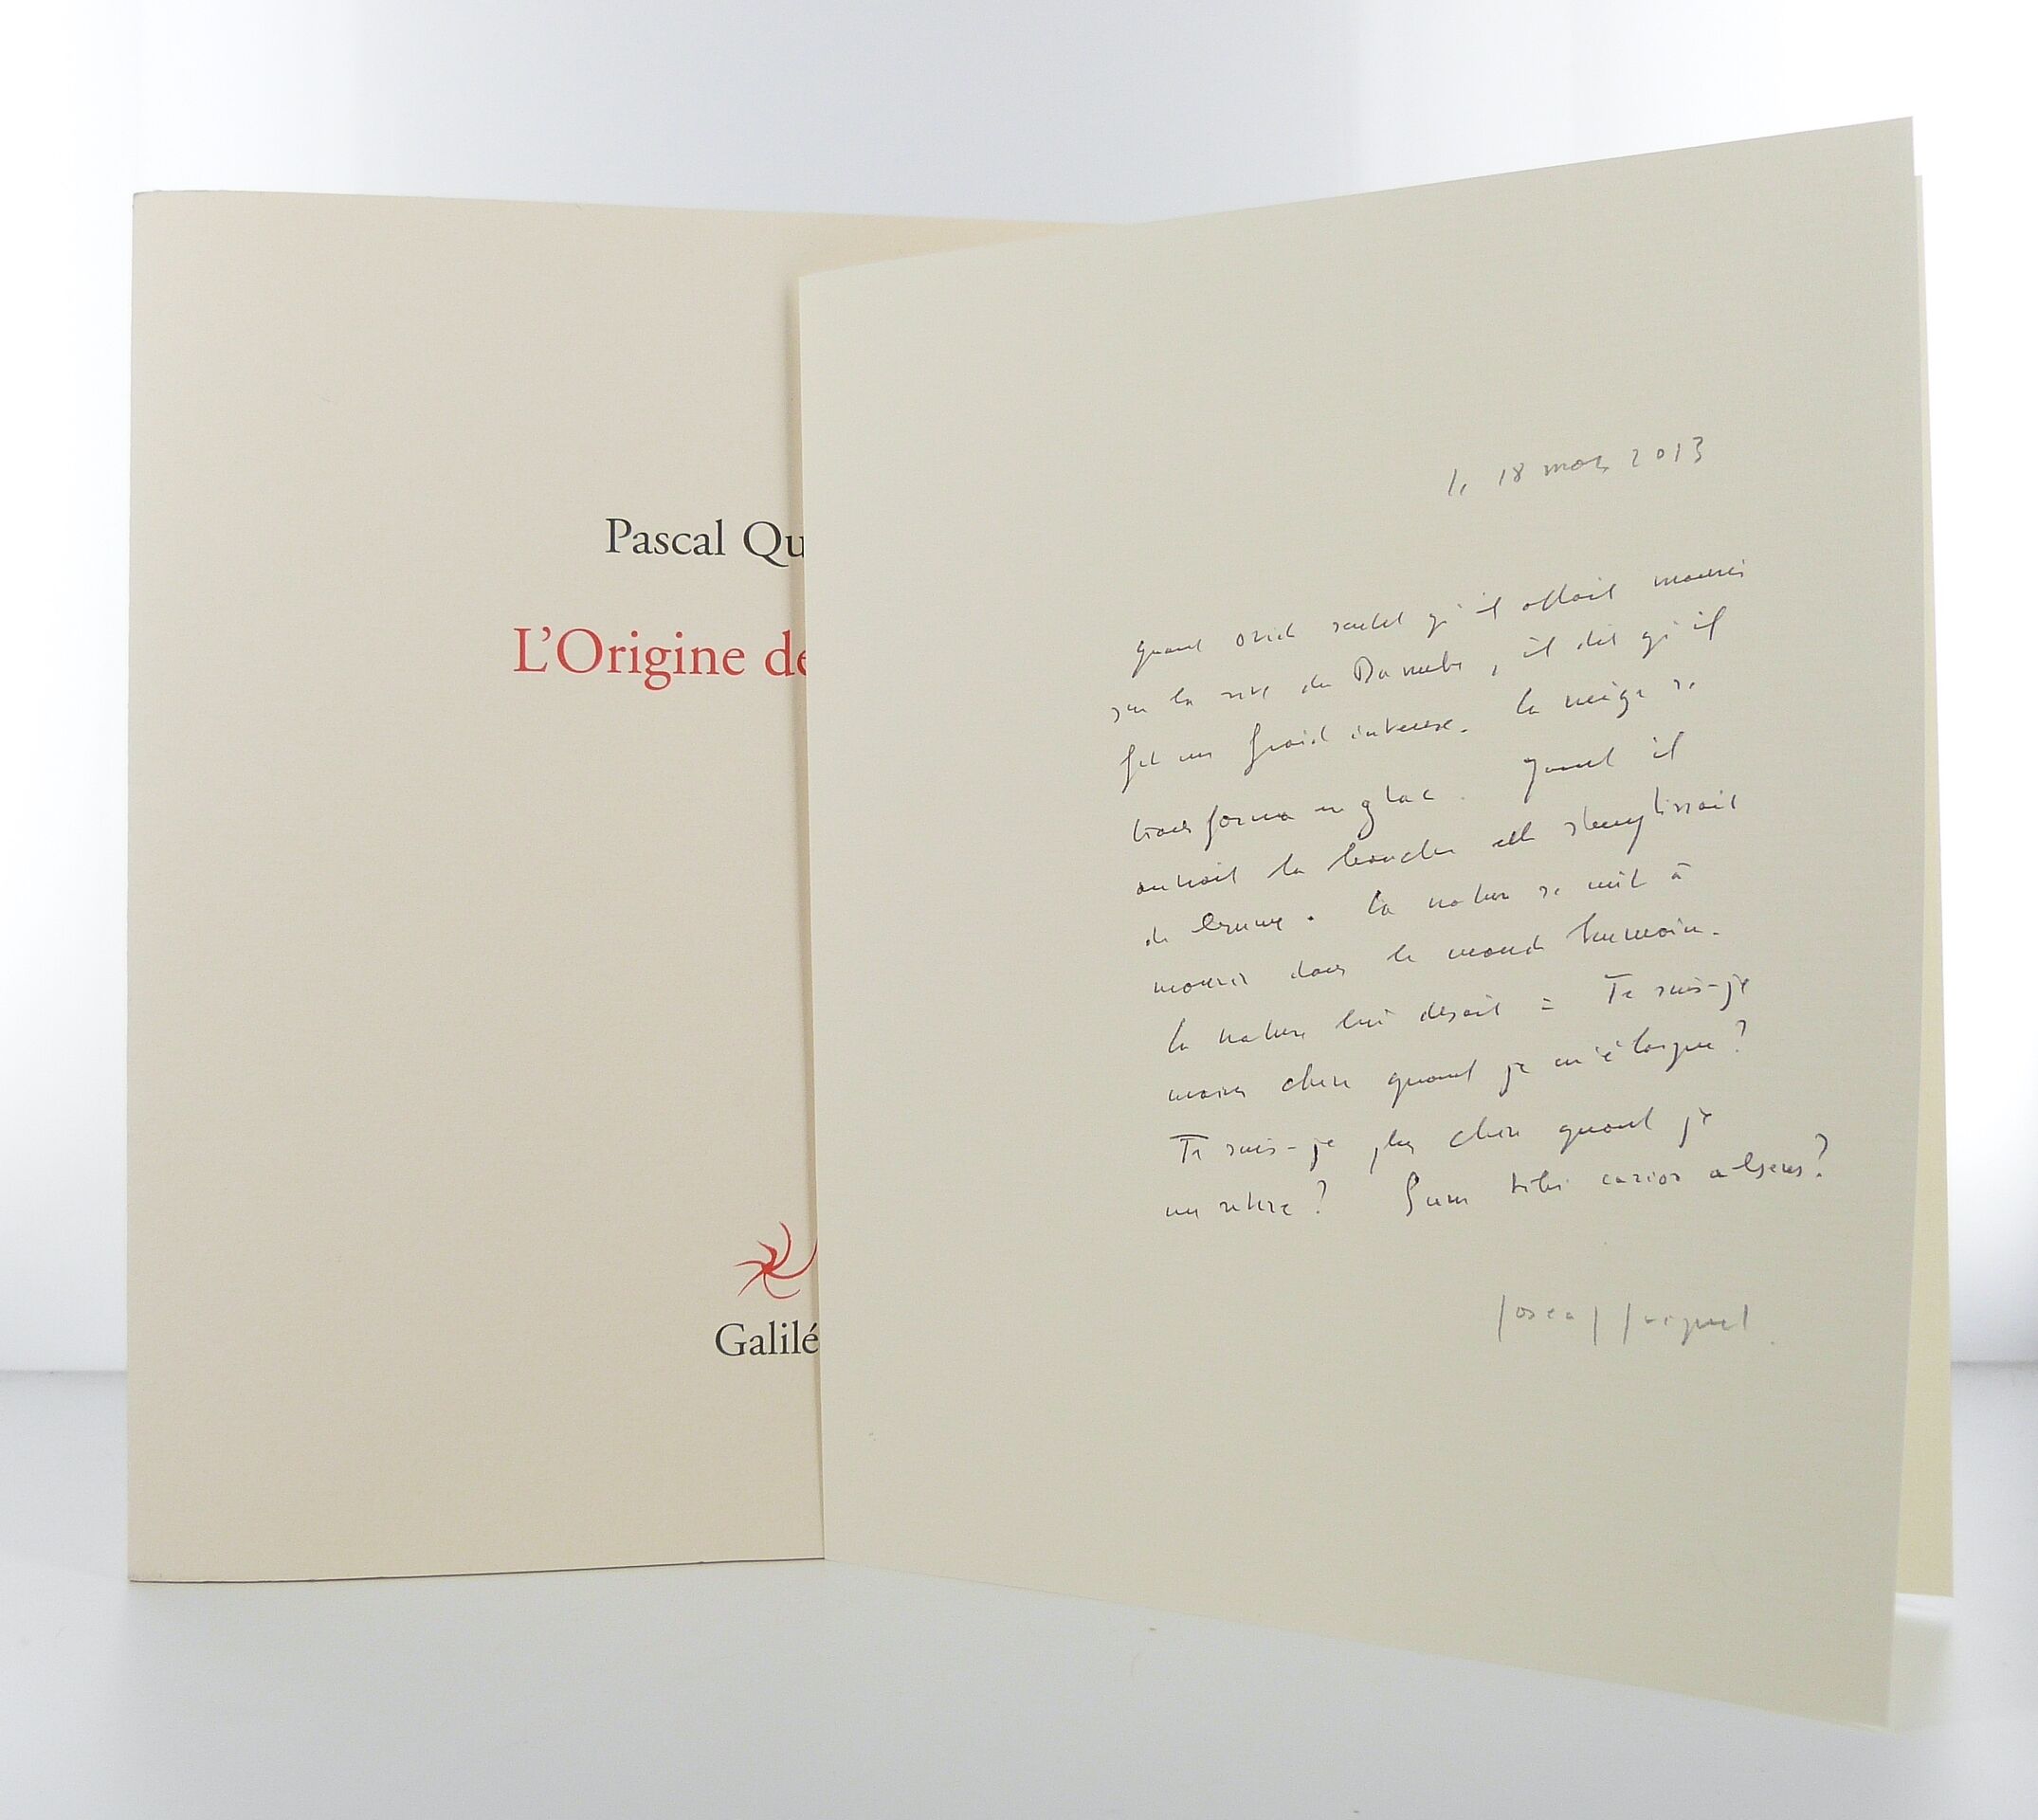 Pascal Qu
L'Origine de
Galilé
le 18 mars 2013
quand Ovide sentit qu'il allait mourir
sur la rive du Danube, il dit qu'il
fit un froid intense. La neige se
transforma en glace. Quand il
ouvrait la bouche elle s'emplissait
de brume. La nature se mit à
mourir dans le monde humain.
La nature lui disait : Te suis-je
moins chère quand je m'éloigne ?
Te suis-je plus chère quand je
me retire ? Sum tibi carior absens ?
Pascal Quignard